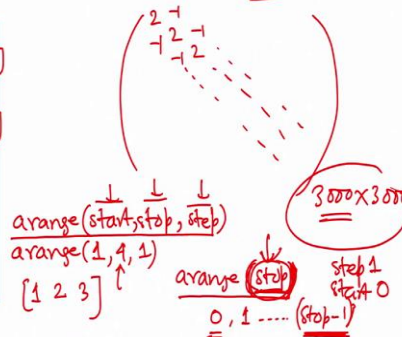 2 -1
-1 2 -1
-1 2
3000x3000
arange(start,stop,step)
arange(1,4,1)
[1 2 3]
arange(stop)
step 1
start 0
0, 1 ..... (stop-1)